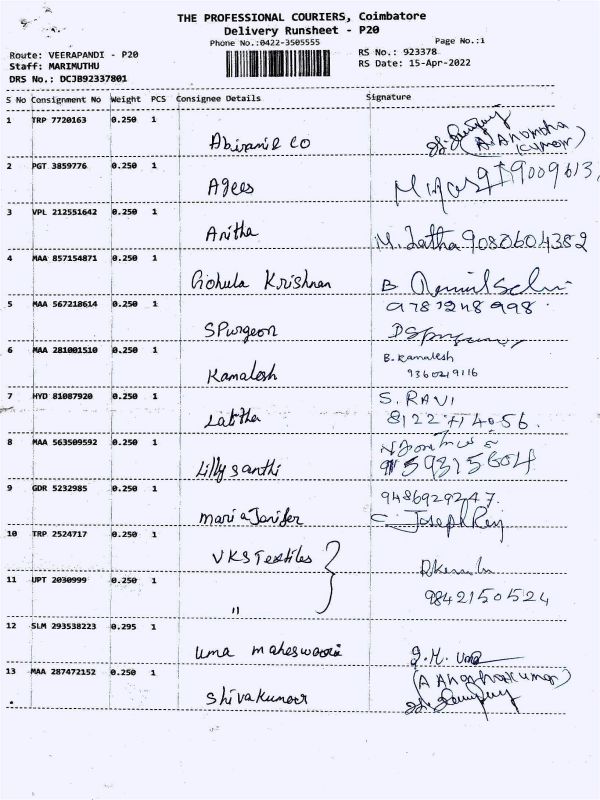 THE PROFESSIONAL COURIERS, Coimbatore
Delivery Runsheet - P20
Phone No.:0422-3505555
Page No.:1
Route: VEERAPANDI - P20
RS No.: 923378
Staff: MARIMUTHU
RS Date: 15-Apr-2022
DRS No.: DCJB92337801
S No Consignment No Weight PCS Consignee Details Signature
1 TRP 7720163 0.250 1
Abirami & Co
2 PGT 3859776 0.250 1
Agees
3 VPL 212551642 0.250 1
Anitha M. Latha 9080604382
4 MAA 857154871 0.250 1
Gohula Krishnan B.
5 MAA 567218614 0.250 1
SPurgeon
6 MAA 281001510 0.250 1 B. Kamalesh
Kamalesh 9360219116
7 HYD 81087920 0.250 1 S. RAVI
Lalitha
8 MAA 563509592 0.250 1
Lilly santhi
9 GDR 5232985 0.250 1 9486929247.
maria Janifer C. Joseph Rey
10 TRP 2524717 0.250 1
VKS Textiles
11 UPT 2030999 0.250 1
" 9842150524
12 SLM 293538223 0.295 1
uma maheswari
13 MAA 287472152 0.250 1
Shivakumar